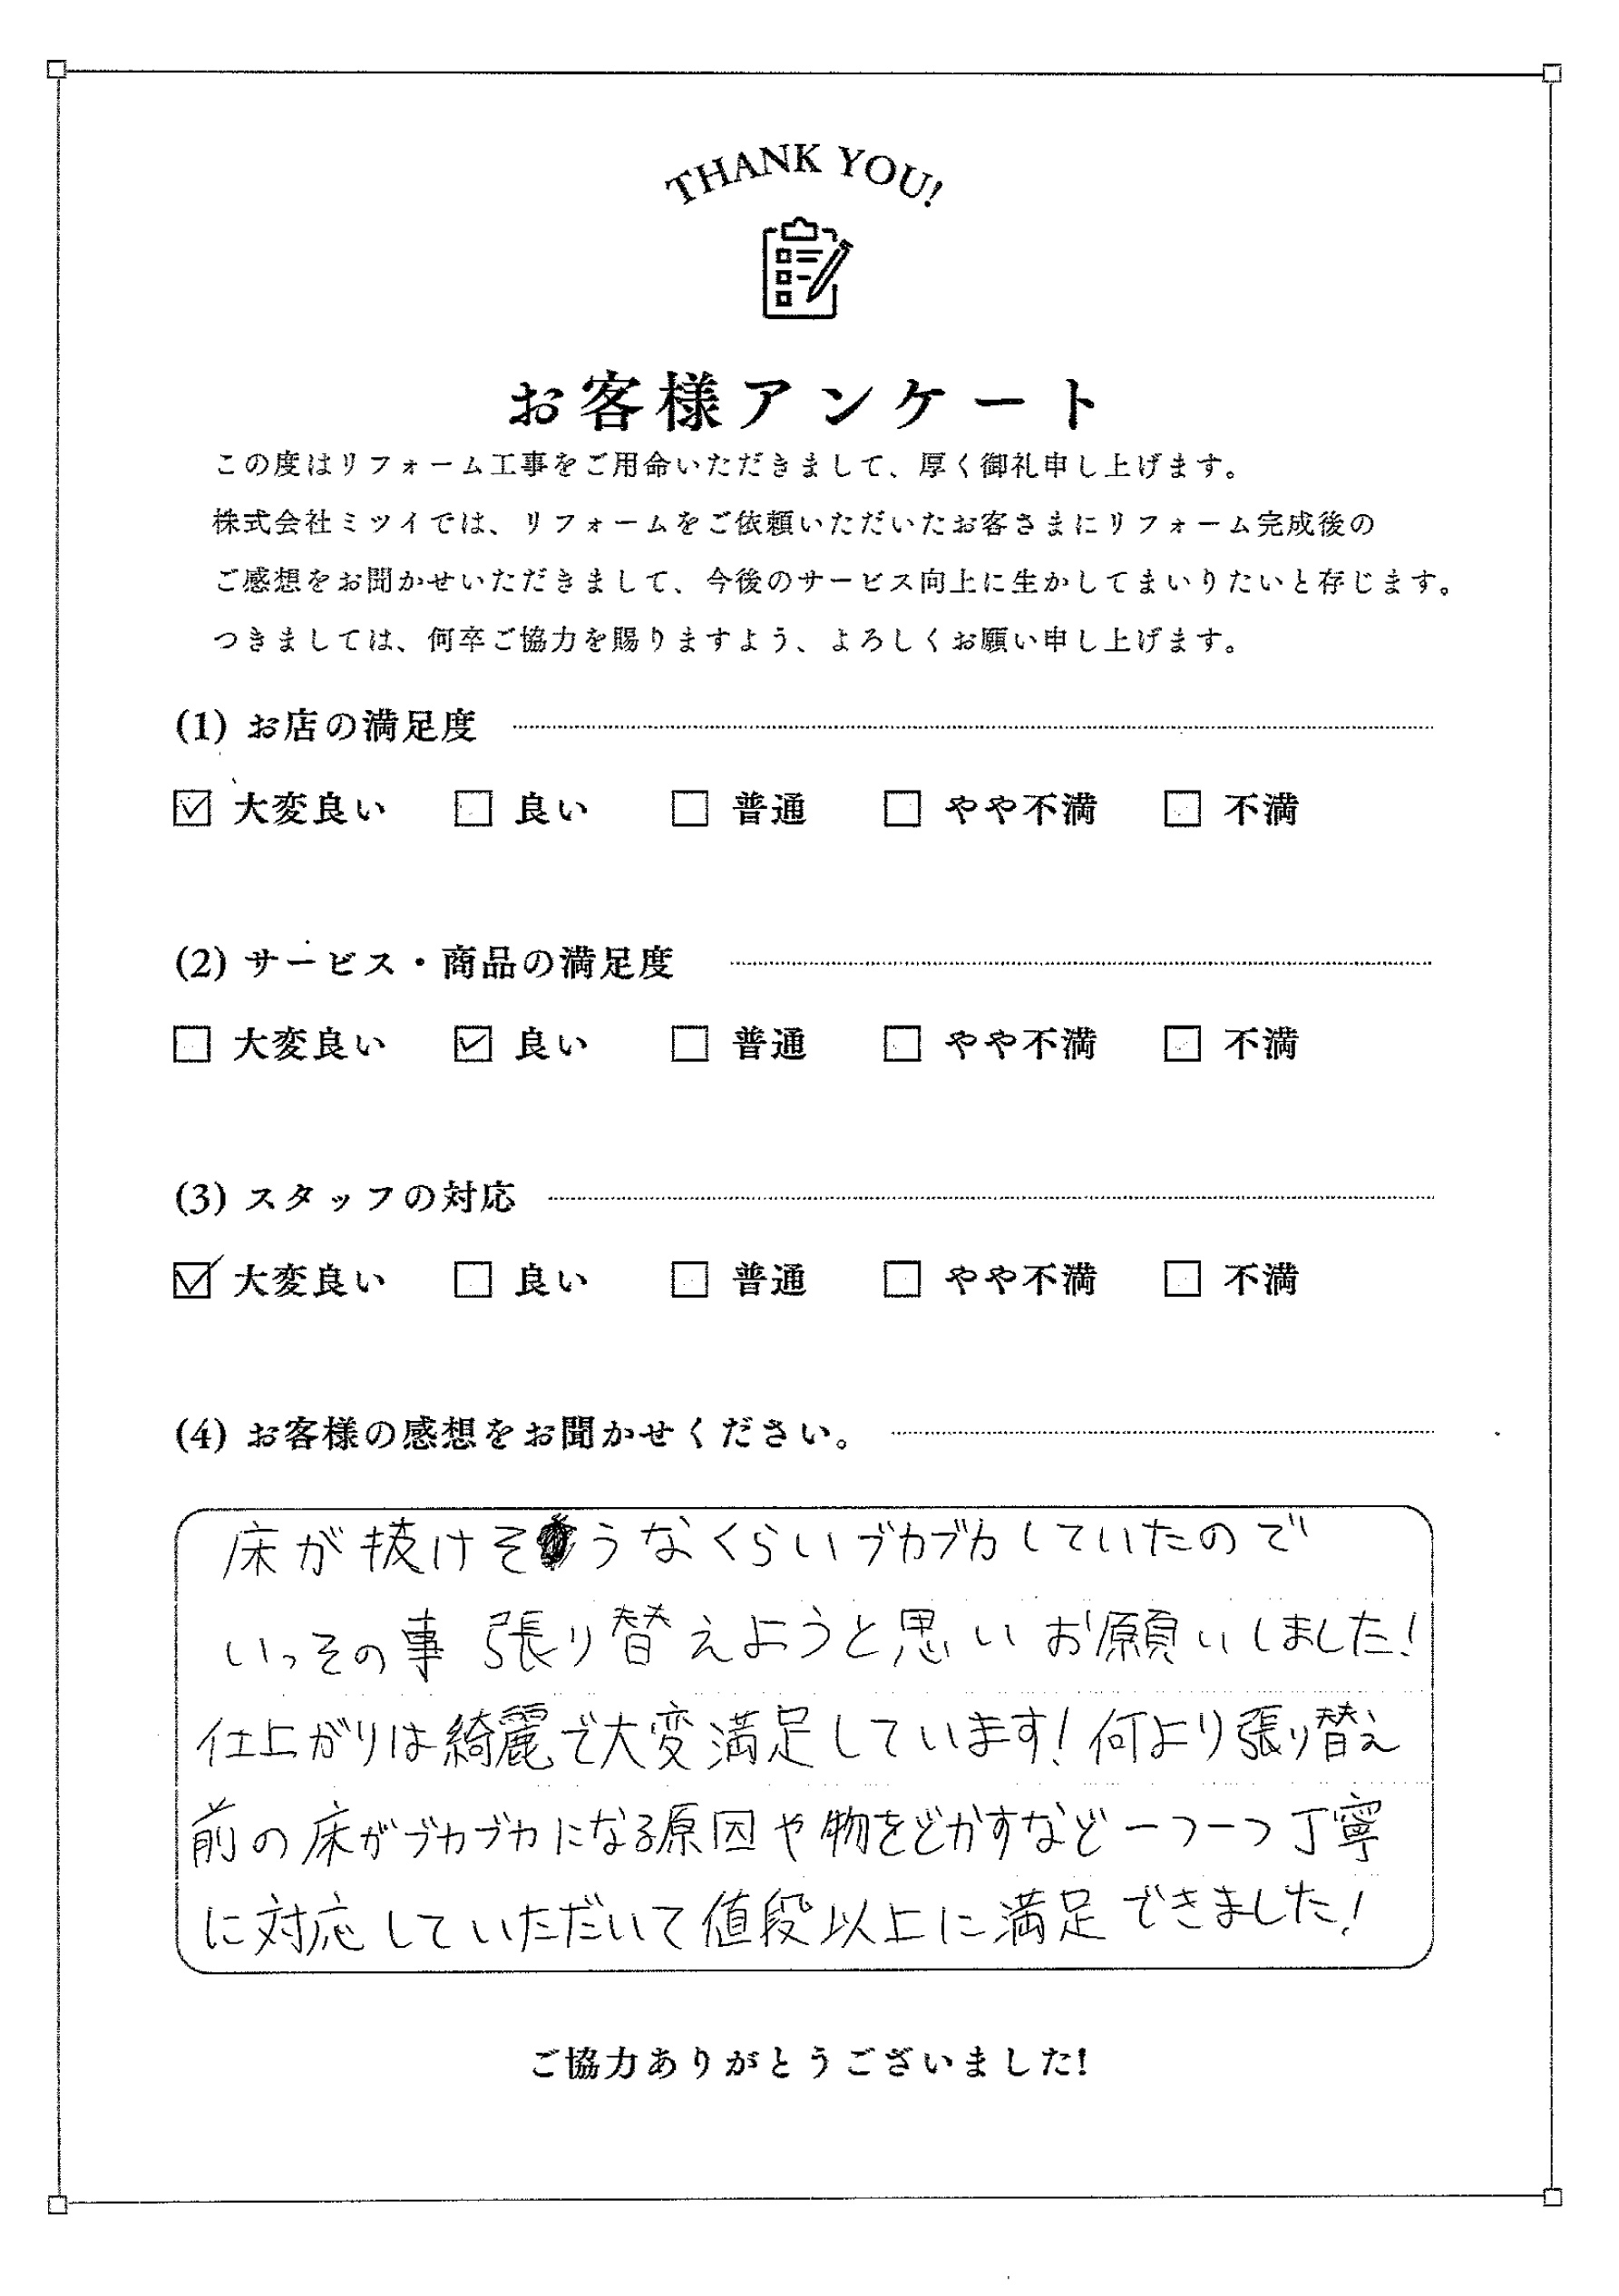 THANK YOU!
お客様アンケート
この度はリフォーム工事をご用命いただきまして、厚く御礼申し上げます。
株式会社ミツイでは、リフォームをご依頼いただいたお客さまにリフォーム完成後の
ご感想をお聞かせいただきまして、今後のサービス向上に生かしてまいりたいと存じます。
つきましては、何卒ご協力を賜りますよう、よろしくお願い申し上げます。
(1) お店の満足度
☑ 大変良い □ 良い □ 普通 □ やや不満 □ 不満
(2) サービス・商品の満足度
□ 大変良い ☑ 良い □ 普通 □ やや不満 □ 不満
(3) スタッフの対応
☑ 大変良い □ 良い □ 普通 □ やや不満 □ 不満
(4) お客様の感想をお聞かせください。
床が抜けそうなくらいブカブカしていたので
いっその事 張り替えようと思い お願いしました!
仕上がりは綺麗で大変満足しています!何より張り替え
前の床がブカブカになる原因や物をどかすなど一つ一つ丁寧
に対応していただいて値段以上に満足できました!
ご協力ありがとうございました!